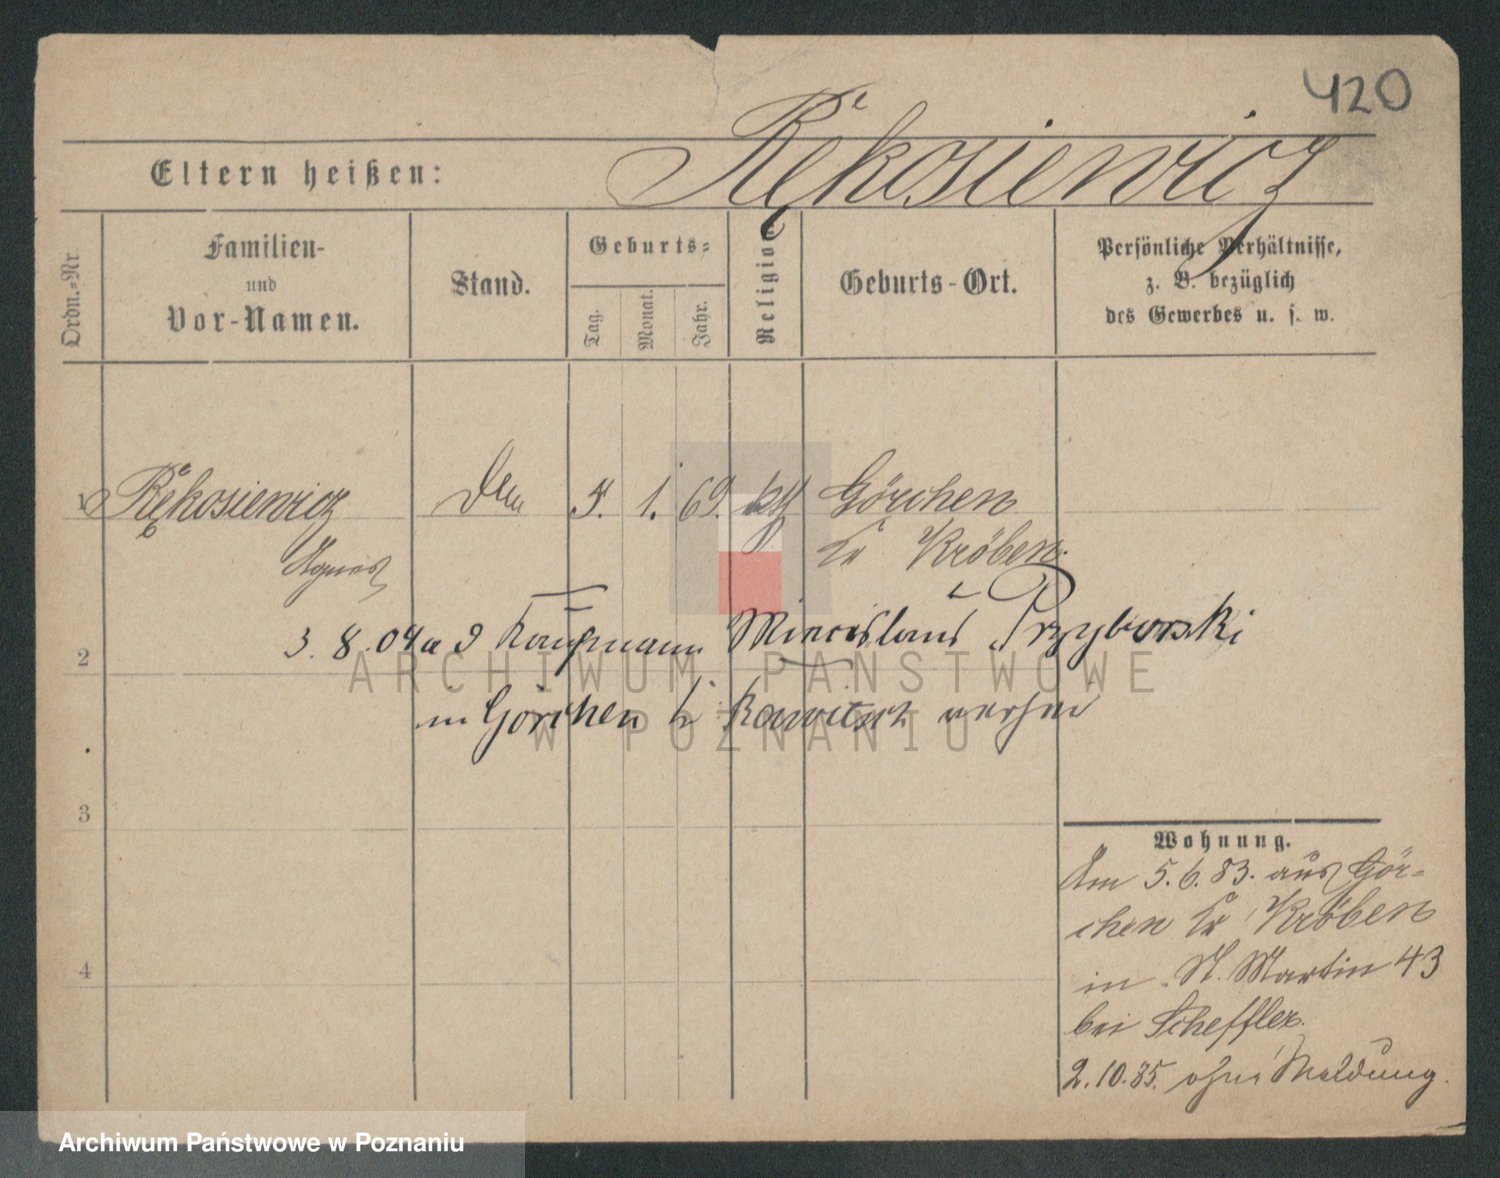 420
Rękosiewicz
Eltern heißen:
Ordn.-Nr.
Familien-
und
Vor-Namen.
Stand.
Geburts-
Tag.
Monat.
Jahr.
Religion
Geburts-Ort.
Persönliche Verhältnisse,
z. B. bezüglich
des Gewerbes u. s. w.
1 Rękosiewicz 5. 1. 69. kth Görchen
Agnes Kr Kröben.
3.8.04 a d Kaufmann Miecislaus Przyborski
2
in Görchen Kr Rawitsch verh
3
4
Wohnung.
Am 5.6.83. aus Gör-
chen Kr Kröben
in St. Martin 43
bei Scheffler.
2.10.85. ohne Meldung.
ARCHIWUM PAŃSTWOWE
W POZNANIU
Archiwum Państwowe w Poznaniu